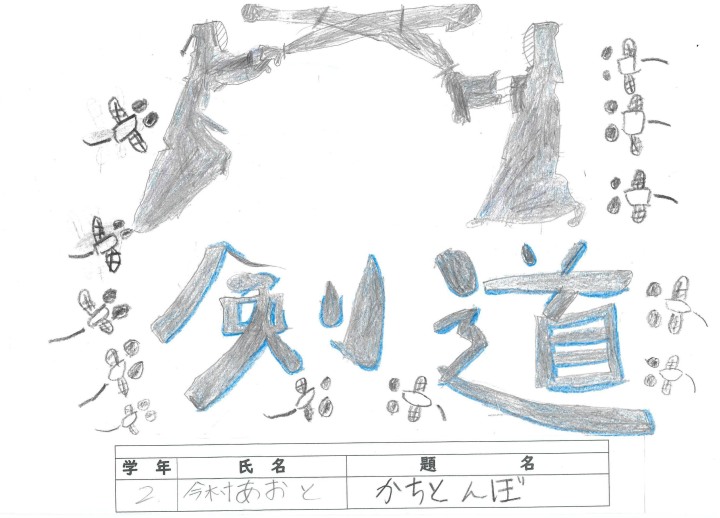 剣道
学年 氏名 題名
2 今村あおと かちとんぼ